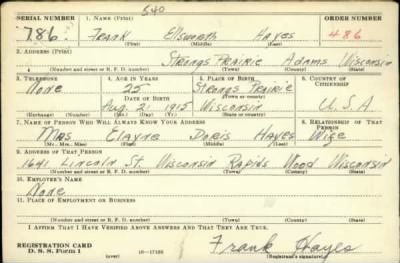 540
SERIAL NUMBER 1. NAME (Print) ORDER NUMBER
786 Frank Ellsworth Hayes 486
(First) (Middle) (Last)
2. ADDRESS (Print)
Strongs Prairie Adams Wisconsin
(Number and street or R. F. D. number) (Town) (County) (State)
3. TELEPHONE 4. AGE IN YEARS 5. PLACE OF BIRTH 6. COUNTRY OF CITIZENSHIP
None 25 Strongs Prairie
DATE OF BIRTH (Town or county)
Aug. 2 1915 Wisconsin U.S.A
(Exchange) (Number) (Mo.) (Day) (Yr.) (State or country)
7. NAME OF PERSON WHO WILL ALWAYS KNOW YOUR ADDRESS 8. RELATIONSHIP OF THAT PERSON
Mrs Elayne Doris Hayes Wife
(Mr., Mrs., Miss) (First) (Middle) (Last)
9. ADDRESS OF THAT PERSON
1641 Lincoln St. Wisconsin Rapids Wood Wisconsin
(Number and street or R. F. D. number) (Town) (County) (State)
10. EMPLOYER'S NAME
None
11. PLACE OF EMPLOYMENT OR BUSINESS
(Number and street or R. F. D. number) (Town) (County) (State)
I AFFIRM THAT I HAVE VERIFIED ABOVE ANSWERS AND THAT THEY ARE TRUE.
REGISTRATION CARD Frank Hayes
D. S. S. Form 1 (over) (Registrant's signature)